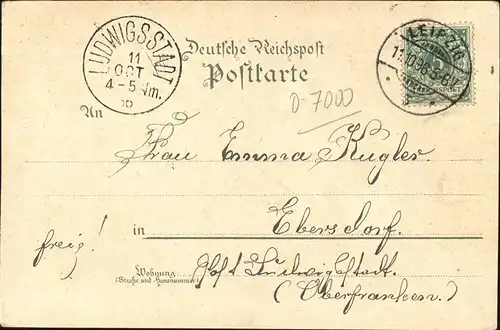 LUDWIGSSTADT
11
OCT
4-5 Nm.
Deutsche Reichspost
Postkarte
LEIPZIG
11.10.98.5-6V
D-7000
An
Frau Emma Kugler.
in Ebersdorf.
frei!
Wohnung
(Straße und Hausnummer)
Post Ludwigstadt.
(Oberfranken.)